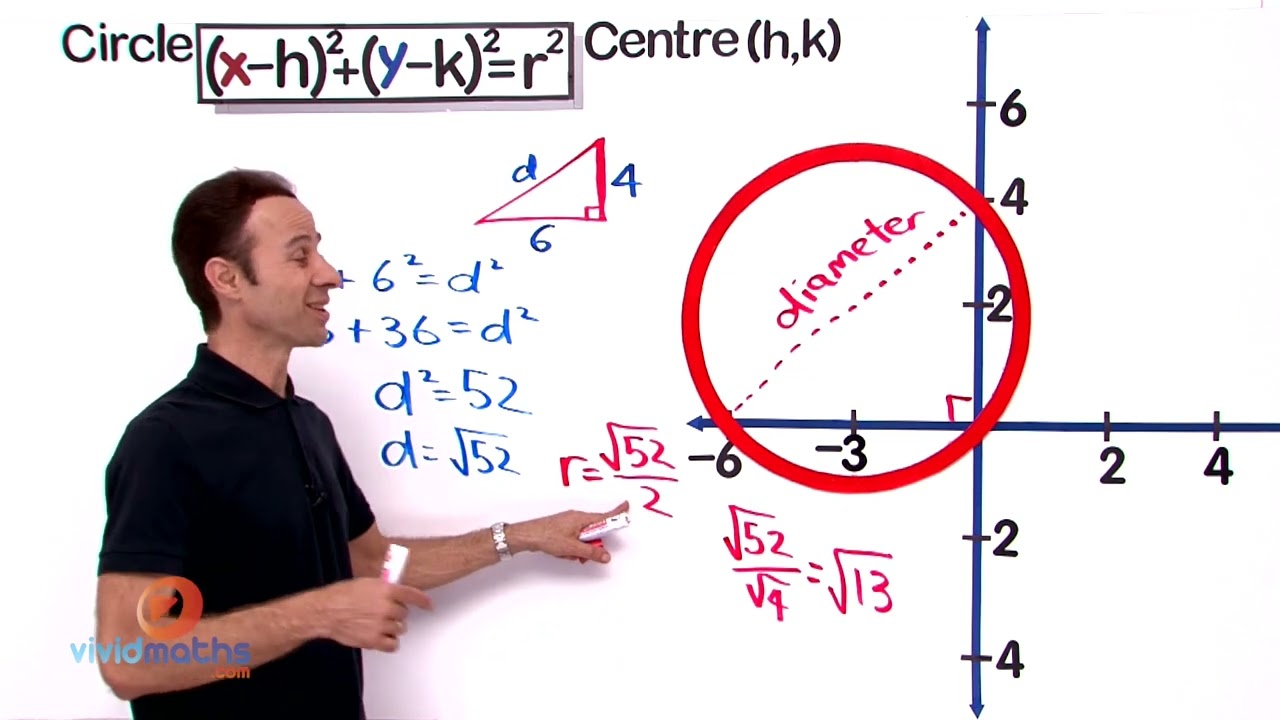 Circle (x-h)²+(y-k)²=r² Centre (h,k)
d
4
6
+ 6² = d²
+ 36 = d²
d² = 52
d = √52
r = √52/2
√52/√4 = √13
diameter
r
6
4
2
-6 -3 2 4
-2
-4
vividmaths
.com